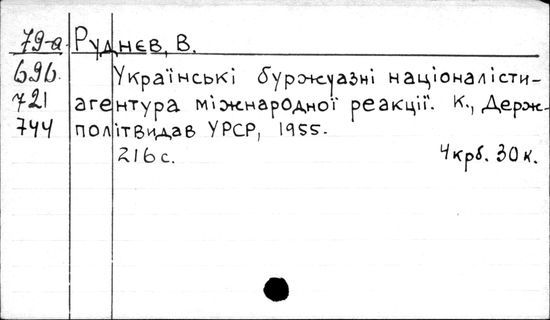 79-а Руднєв, В.
696 Українські буржуазні націоналісти-
721 агентура міжнародної реакції. К., Держ-
744 політвидав УРСР, 1955.
216 с. 4 крб. 30 к.